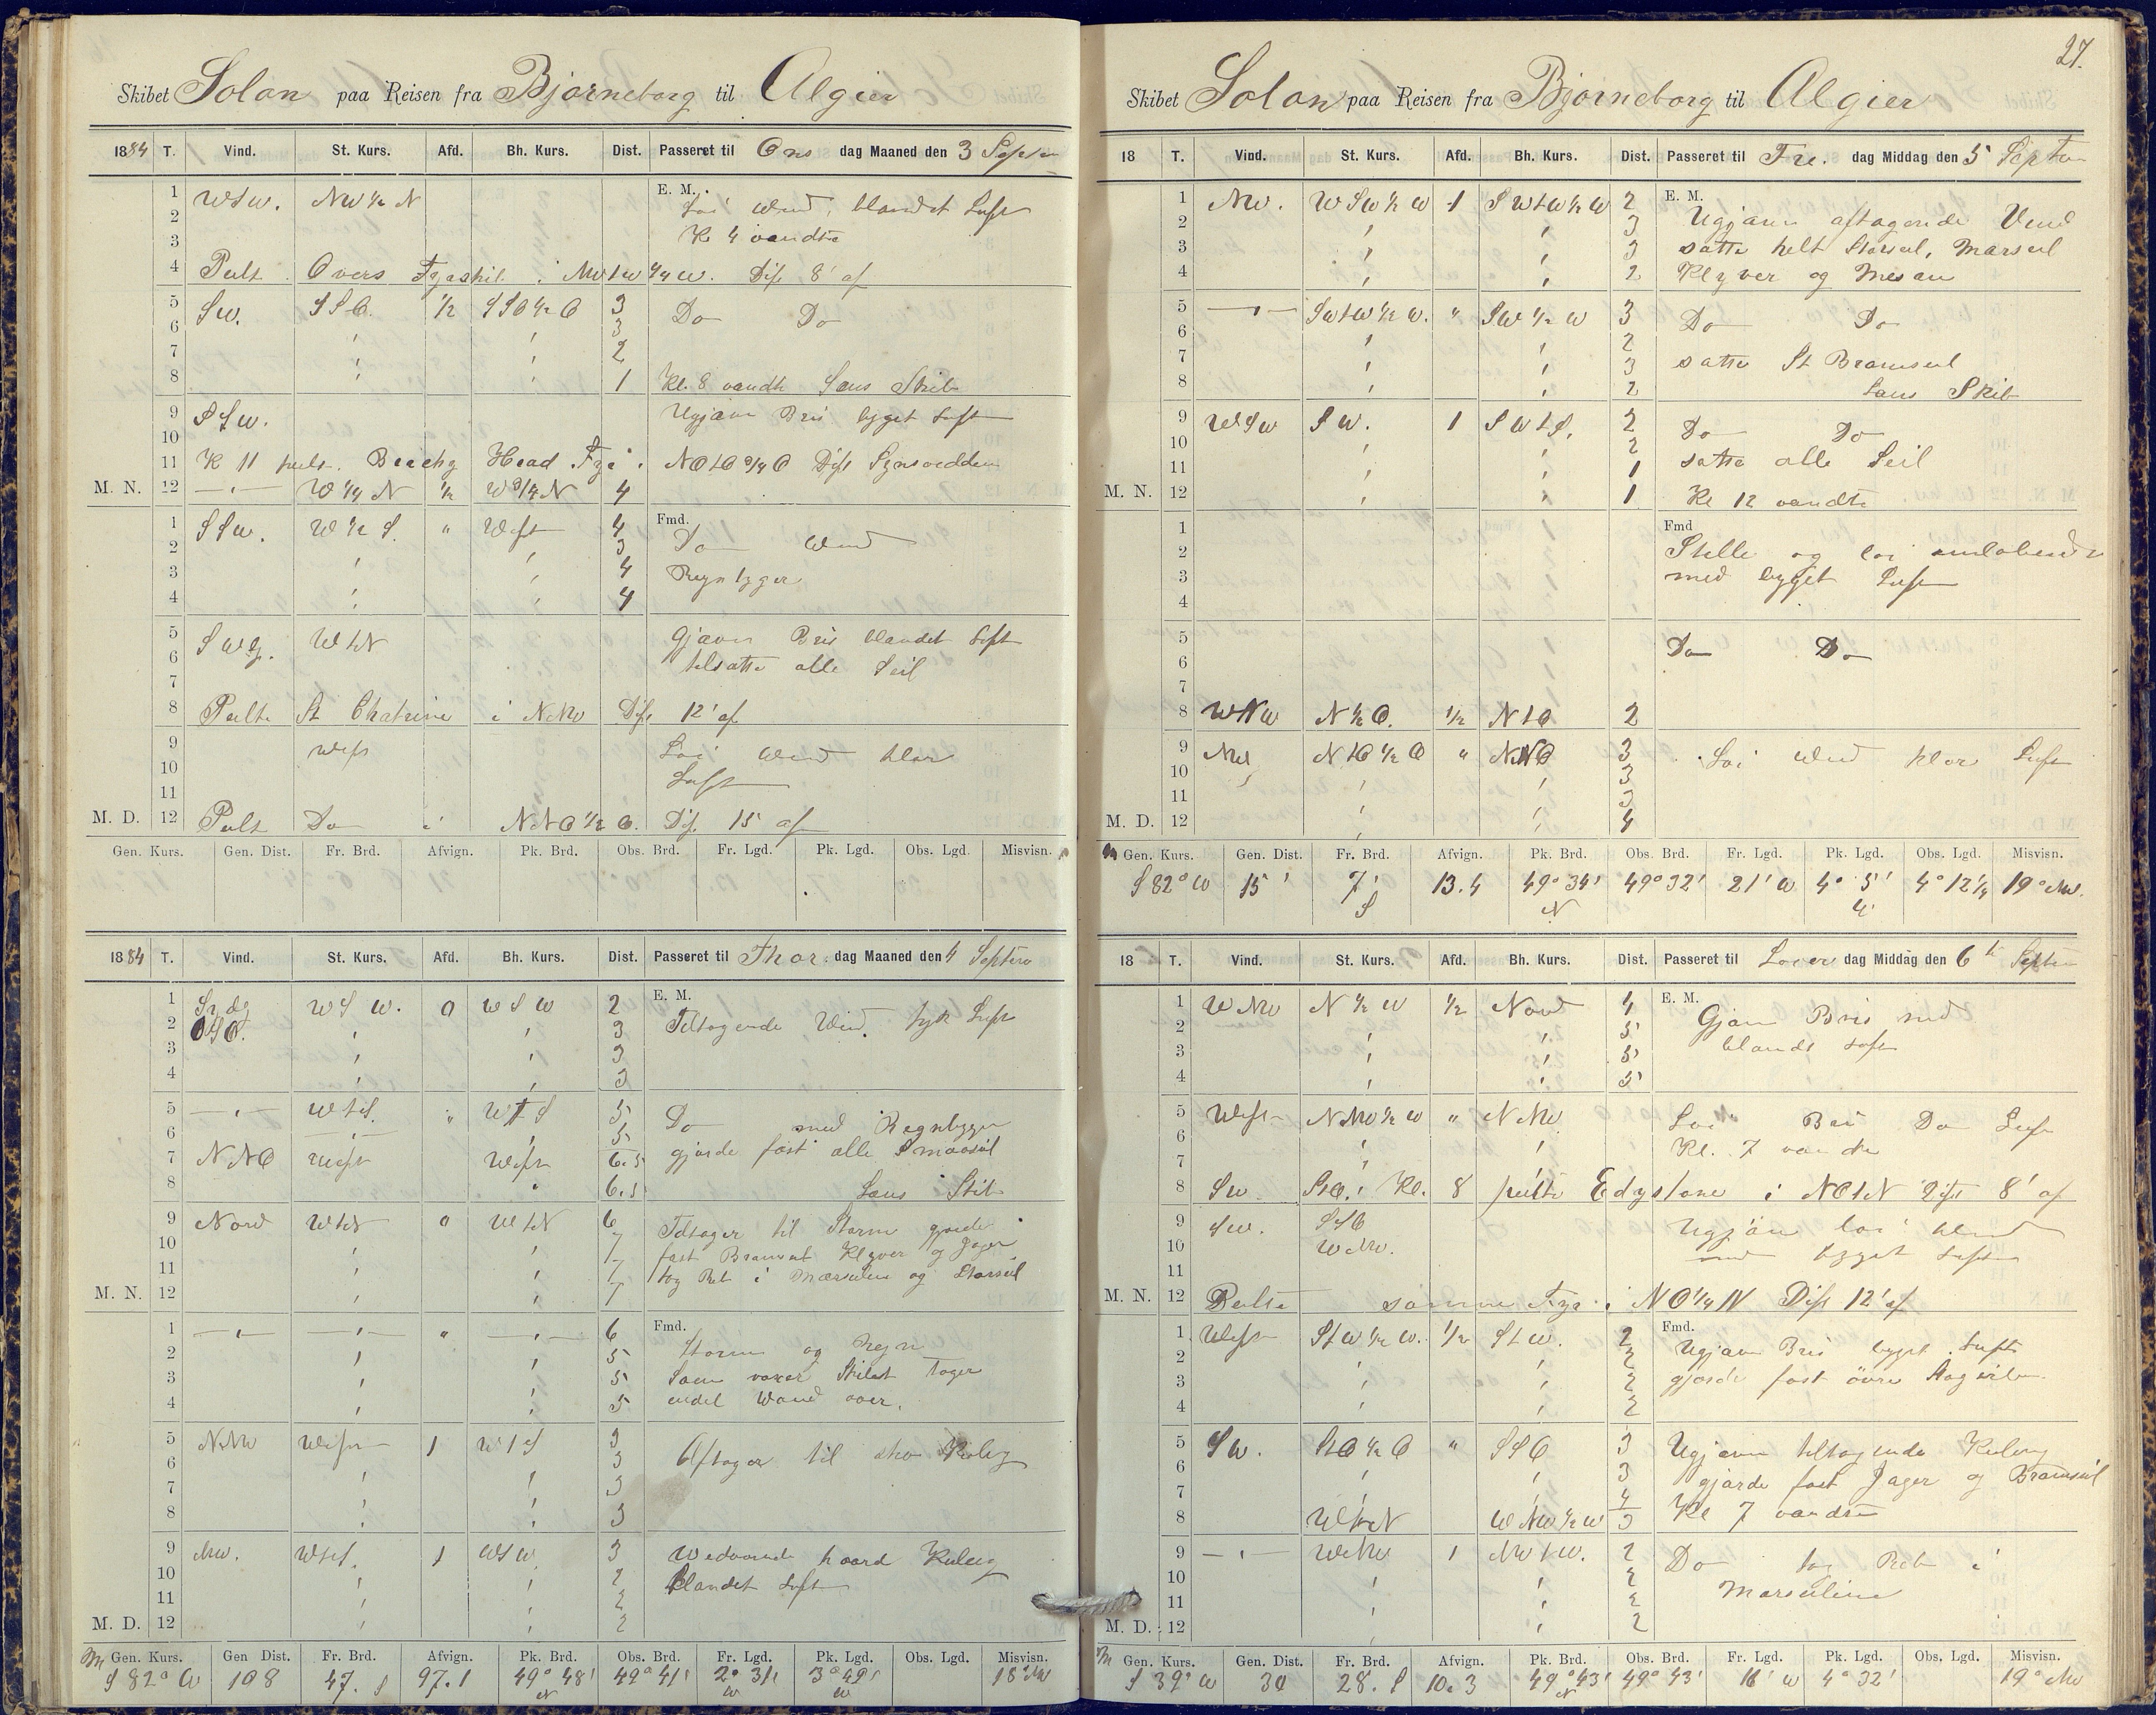 Skibet Solon paa Reisen fra Bjørneborg til Algier
1884 T. Vind. St. Kurs. Afd. Bh. Kurs. Dist. Passeret til Ons dag Maaned den 3 Septer
1 WSW. NW ½ N E. M.
2 Löi Wind, blandet Luft
3 Kl 4 vandte
4 Peilt Overs Fyrskib i NWtW ¼ W. Dist 8' af
5 SW. SSO. ½ SSO ½ O 3 Do Do
6 3
7 2
8 1 Kl. 8 vandte Læns Skib
9 SSW. Ugjævn Bris bygget Luft
10
11 Kl 11 peilt. Beachy Head Fyr i NOtO ¾ O Dist Synsvidden
M. N. 12 W ¼ N ½ W ¾ N 4
1 SSW. W ½ S. " West 4 Fmd.
2 3 Do Wind
3 4 Regnbyger
4 4
5 SWg. WtN Gjævn Bris blandet Luft
6 tilsatte alle Seil
7
8 Peilte St Chatrine i NNW Dist 12' af
9 West Löi Wind klar
10 Luft
11
M. D. 12 Peilt Do i NNO ½ O. Dist 15 af
Gen. Kurs. Gen. Dist. Fr. Brd. Afvign. Pk. Brd. Obs. Brd. Fr. Lgd. Pk. Lgd. Obs. Lgd. Misvisn.
1884 T. Vind. St. Kurs. Afd. Bh. Kurs. Dist. Passeret til Thor. dag Maaned den 4 Septers
1 Sydg WSW. 0 WSW 2 E. M.
2 OSO. 3 Tiltagende Wind. tyk Luft
3 3
4 3
5 WtS. " WtS 5 Do med Regnbyger
6 5 gjorde fast alle Smaaseil
7 NNO West West 6.5
8 6.5 Læns Skib
9 Nord WtN 0 WtN 6 Tiltager til Storm gjorde
10 7 fast Bramseil Klyver og Jager
11 7 tog Reb i Mærseilene og Storseil
M. N. 12 7
1 " 6 Fmd.
2 5 Storm og Regn
3 5 Søen voxer Skibet Tager
4 5 endel Vand over.
5 NNW West 1 WtS 3
6 3 Aftager til skov Kuling
7 3
8 3
9 NW. WtS. 1 WSW 3 Vedvarende haard Kuling
10 2 blandet Luft
11 2
M. D. 12 2
Gen. Kurs. Gen Dist. Fr. Brd. Afvign. Pk. Brd. Obs. Brd. Fr. Lgd. Pk. Lgd. Obs. Lgd. Misvisn.
M S 82° W 108 47. S 97.1 49° 48' N 49° 41' 2° 31' W 3° 49' W 18° NW
27.
Skibet Solon paa Reisen fra Bjørneborg til Algier
18 T. Vind. St. Kurs. Afd. Bh. Kurs. Dist. Passeret til Fre. dag Middag den 5 Septer
1 NW. WSW ½ W 1 SWtW ½ W 2 E. M.
2 3 Ugjævn aftagende Vind
3 3 satte helt Storseil, Mærseil
4 2 Klyver og Mesan
5 SWtW ½ W. " SW ½ W 3 Do Do
6 2
7 3 satte St Bramseil
8 2 Læns Skib
9 WSW SW. 1 SWtS. 2 Do Do
10 2 satte alle Seil
11 1
M. N. 12 1 Kl 12 vandte
1 Fmd
2 Stille og löi omløbende
3 med bygget Luft
4
5 Do Do
6
7
8 WNW N ½ O. ½ NtO 2
9 NW NtO ½ O " NNO 3 Löi Wind klar Luft
10 3
11 3
M. D. 12 4
M Gen. Kurs. Gen. Dist. Fr. Brd. Afvign. Pk. Brd. Obs. Brd. Fr. Lgd. Pk. Lgd. Obs. Lgd. Misvisn.
S 82° W 15' 7' S 13.4 49° 34' N 49° 32' 21' W 4° 5' W 4° 12 ¼ 19° NW.
18 T. Vind. St. Kurs. Afd. Bh. Kurs. Dist. Passeret til Löver dag Middag den 6te Septer
1 WNW N ½ W ½ Nord 4 E. M.
2 5 Gjævn Bris med
3 5 blandt Luft
4 5
5 West NNW ½ W " NNW Löi Bris Do Luft
6 Kl. 7 vandte
7
8 SW StO. Kl. 8 peilte Edystone i NOtN Dist 8' af
9 SW. SSO Ugjävn löi Wind
10 WNW. med bygget Luft
11
M. N. 12 Peilte samme Fyr i NO ¼ N Dist 12' af
1 West StW ½ W. ½ StW. 2 Fmd.
2 2 Ugjævn Bris bygget Luft
3 2 gjorde fast övre Stagseil
4 2
5 SW. StO ½ O " SSO 3 Ugjævn tiltagende Kuling
6 3 gjorde fast Jager og Bramseil
7 4 Kl 7 vandte
8 WtN WNW ½ W 3
9 WNW 1 NWtW. 2 Do tog Reb i
10 2 Mærseilene
11 2
M. D. 12 2
M Gen. Kurs. Gen. Dist. Fr. Brd. Afvign. Pk. Brd. Obs. Brd. Fr. Lgd. Pk. Lgd. Obs. Lgd. Misvisn.
S 39° W 30 28. S 10.3 49° 43' N 49° 43' 16' W 4° 32' 19° NW